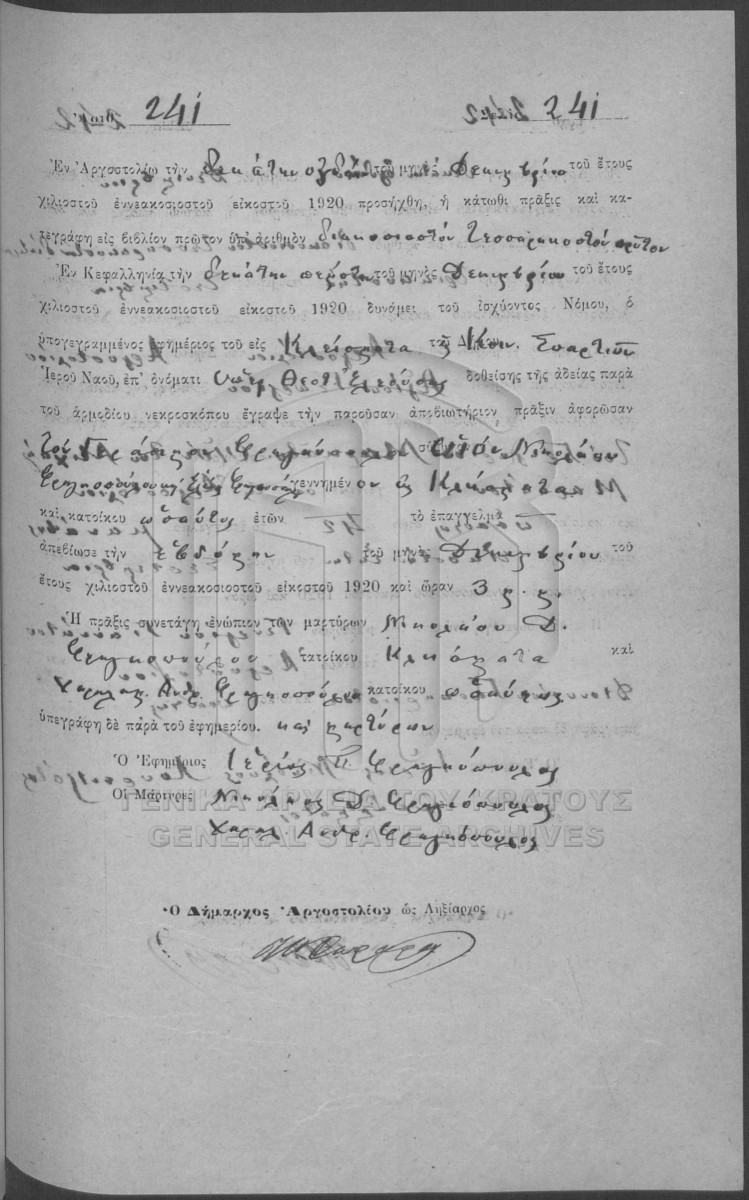 241 241
Ἐν Ἀργοστολίῳ τὴν δεκάτην ὀγδόην τοῦ μηνὸς Δεκεμβρίου τοῦ ἔτους
χιλιοστοῦ ἐννεακοσιοστοῦ εἰκοστοῦ 1920 προσήχθη, ἡ κάτωθι πρᾶξις καὶ κα-
τεγράφη εἰς βιβλίον πρῶτον ὑπ' ἀριθμὸν διακοσιοστὸν τεσσαρακοστὸν πρῶτον
Ἐν Κεφαλληνίᾳ τὴν δεκάτην πέμπτην τοῦ μηνὸς Δεκεμβρίου τοῦ ἔτους
χιλιοστοῦ ἐννεακοσιοστοῦ εἰκοστοῦ 1920 δυνάμει τοῦ ἰσχύοντος Νόμου, ὁ
ὑπογεγραμμένος ἐφημέριος τοῦ εἰς Κλείσματα Κοιν. Σπαρτιῶν
Ἱεροῦ Ναοῦ, ἐπ' ὀνόματι δοθείσης τῆς ἀδείας παρὰ
τοῦ ἁρμοδίου νεκροσκόπου ἔγραψε τὴν παροῦσαν ἀποβιωτήριον πρᾶξιν ἀφορῶσαν
τὸν Φραγκόπουλον Νικολάου
γεννημένον εἰς
καὶ κατοίκου ὡσαύτως ἐτῶν τὸ ἐπάγγελμα
ἀπεβίωσε τὴν ἑβδόμην τοῦ μηνὸς Δεκεμβρίου τοῦ
ἔτους χιλιοστοῦ ἐννεακοσιοστοῦ εἰκοστοῦ 1920 καὶ ὥραν 3 μ. μ.
Ἡ πρᾶξις συνετάγη ἐνώπιον τῶν μαρτύρων Νικολάου Δ.
Φραγκόπουλος κατοίκου Κλείσματα καὶ
Χαραλαμ. Ανδρ. Φραγκόπουλος κατοίκου ὡσαύτως
ὑπεγράφη δὲ παρὰ τοῦ ἐφημερίου. καὶ μαρτύρων
Ὁ Ἐφημέριος Ἱερεὺς Π Φραγκόπουλος
Οἱ Μάρτυρες Νικόλαος Δ. Φραγκόπουλος
Χαραλ. Ανδρ. Φραγκόπουλος
ΓΕΝΙΚΑ ΑΡΧΕΙΑ ΤΟΥ ΚΡΑΤΟΥΣ
GENERAL STATE ARCHIVES
Ὁ Δήμαρχος Ἀργοστολίου ὡς Ληξίαρχος